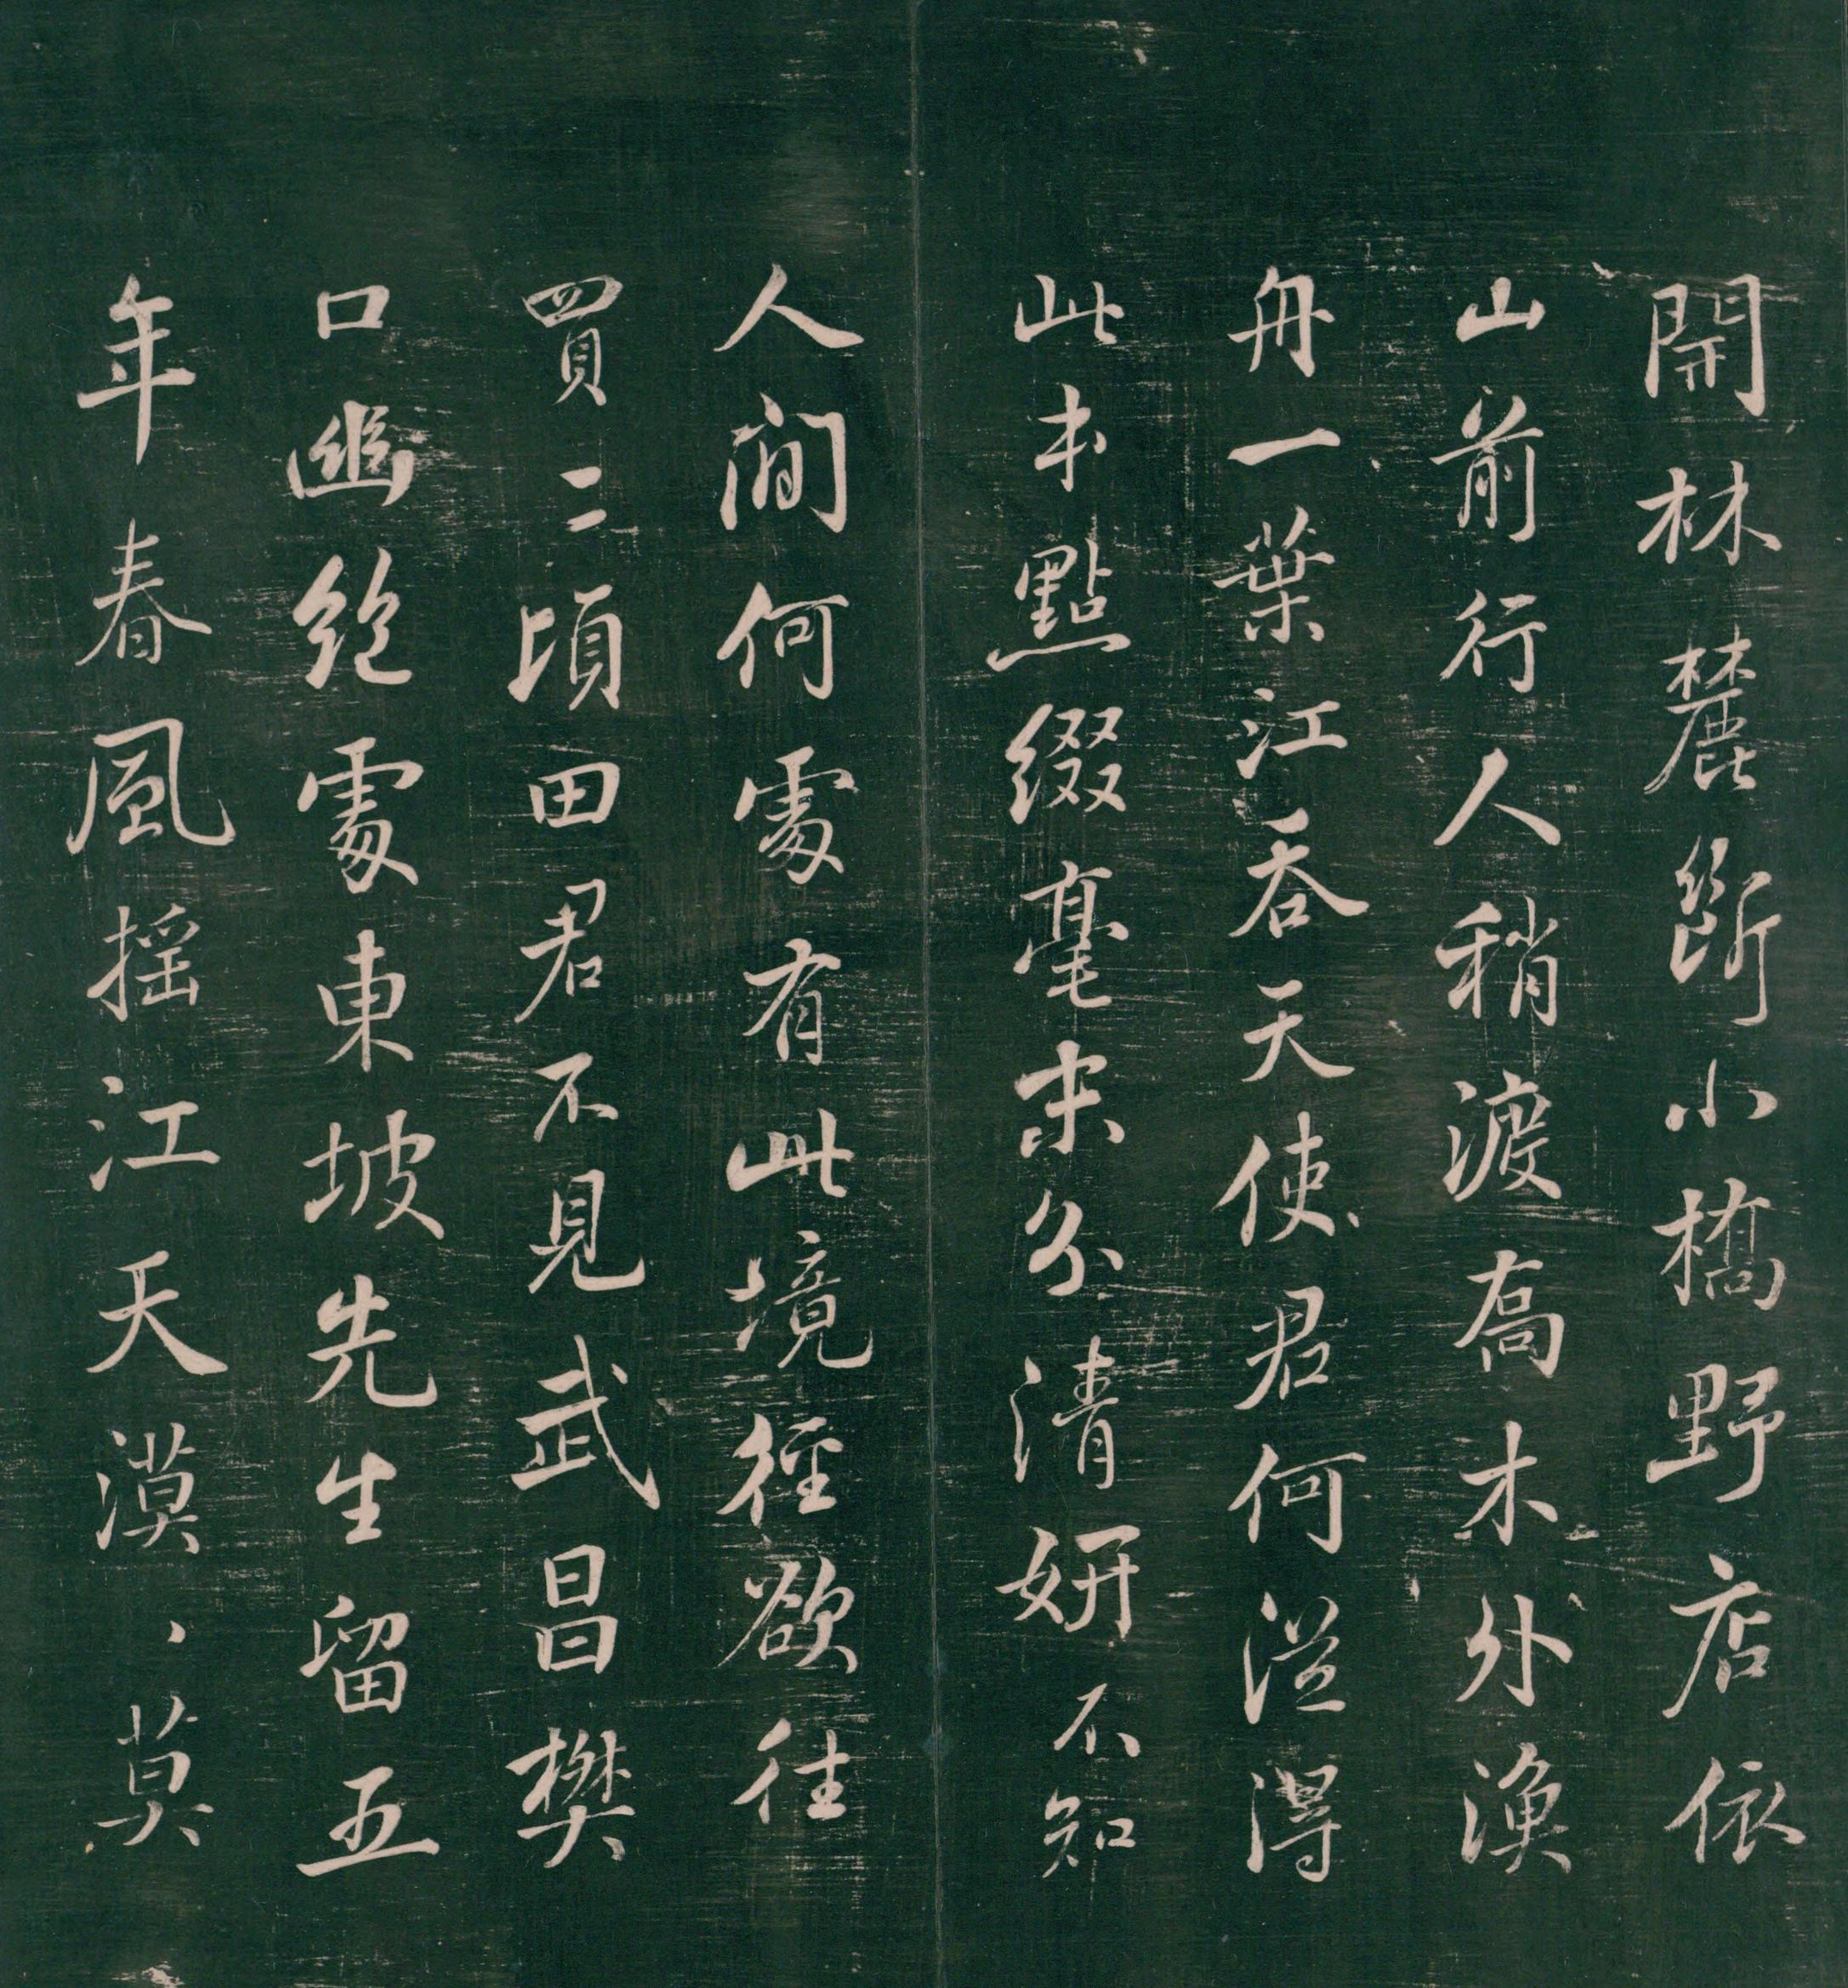 開林麓斷小橋野店依
山前行人稍渡喬木外漁
舟一葉江吞天使君何從得
此本點綴毫末分清妍不知
人間何處有此境徑欲往
買二頃田君不見武昌樊
口幽絕處東坡先生留五
年春風搖江天漠、莫